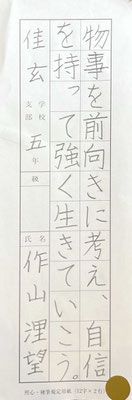 物事を前向きに考え、自信
を持って強く生きていこう。
学校
支部
佳玄
五年
級
氏名
作山浬望
用心・硬筆規定用紙 (12字×2行)